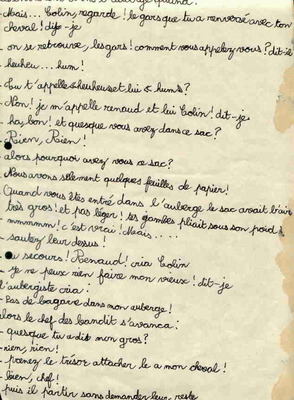 - Mais... Colin, regarde! le gars que tu a renversé avec ton
cheval! dis-je
- on se retrouve, les gars! comment vous appelez vous? dit-il
- heuheu... hum!
- Tu t'appelle heuheu et lui hum?
- Non! je m'appelle renaud et lui Colin! dit-je
- ha, bon! et quesque vous avez dans ce sac?
- Rien, Rien!
- alors pourquoi avez vous ce sac?
- Nous avons sélement quelques feuilles de papier!
- Quand vous êtes entré dans l'auberge le sac avait l'aire
très gros! et pas léger! ses gambles pliait sous son poid
- mmmmm! c'est vrai! Mais....
- sautez leur dessus!
- au secours! Renaud! cria Colin
- je ne peux rien faire mon vieux! dit-je
l'aubergiste cria:
- Pas de bagare dans mon auberge!
alors le chef des bandit s'avanca:
- quesque tu a dit mon gros?
- rien, rien!
- prenez le trésor attacher le a mon cheval!
- bien, chef!
puis il partir sans demander leur reste